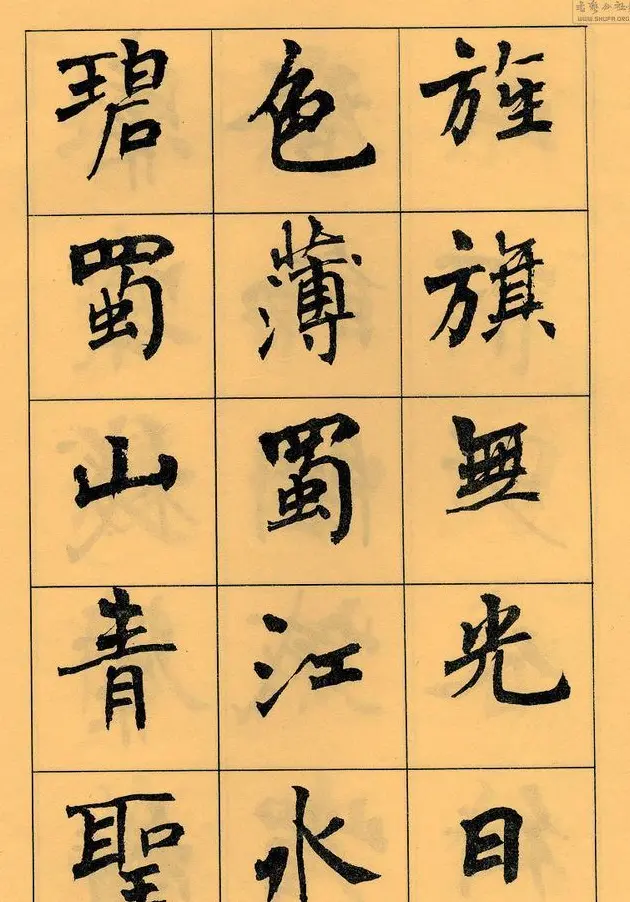 旌旗無光日
色薄蜀江水
碧蜀山青聖
WWW.SHUFA.ORG